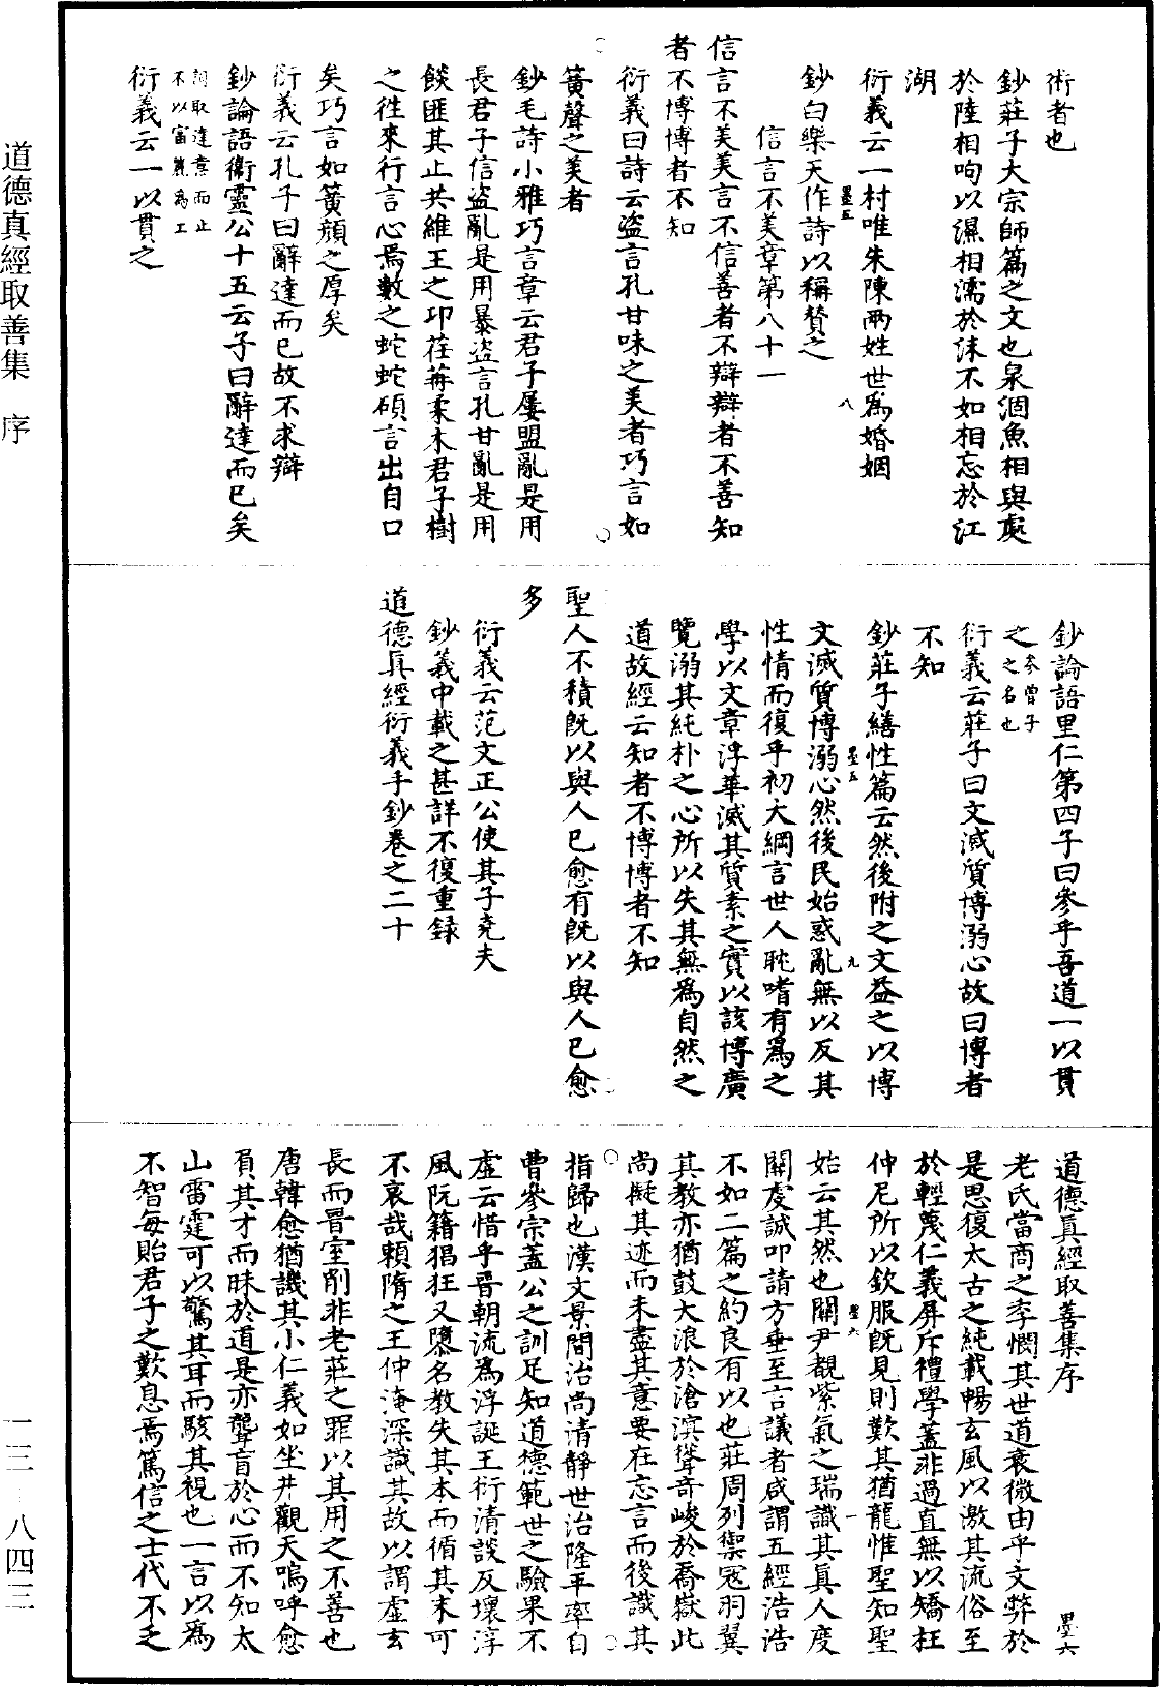 術者也
鈔莊子大宗師篇之文也泉涸魚相與處
於陸相呴以濕相濡於沫不如相忘於江
湖
衍義云一村唯朱陳兩姓世爲婚姻
墨五
八
鈔白樂天作詩以稱贊之
信言不美章第八十一
信言不美美言不信善者不辯辯者不善知
者不博博者不知
衍義曰詩云盜言孔甘味之美者巧言如
簧聲之美者
鈔毛詩小雅巧言章云君子屢盟亂是用
長君子信盜亂是用暴盜言孔甘亂是用
餤匪其止共維王之卭荏苒柔木君子樹
之徃來行言心焉數之蛇蛇碩言出自口
矣巧言如簧顏之厚矣
衍義云孔子曰辭達而已故不求辯
鈔論語衛靈公十五云子曰辭達而已矣
詞取達意而止
不以富麗為工
衍義云一以貫之
鈔論語里仁第四子曰參乎吾道一以貫
之
參曾子
之名也
衍義云莊子曰文滅質博溺心故曰博者
不知
鈔莊子繕性篇云然後附之文益之以博
墨五
九
文滅質博溺心然後民始惑亂無以反其
性情而復乎初夫綱言世人耽嗜有爲之
學以文章浮華滅其質素之實以該博廣
覽溺其純朴之心所以失其無爲自然之
道故經云知者不博博者不知
聖人不積旣以與人已愈有旣以與人已愈
多
衍義云范文正公使其子堯夫
鈔義中載之甚詳不復重録
道德眞經衍義手鈔卷之二十
道德眞經取善集序
墨六
老氏當商之季憫其世道衰微由乎文弊於
是思復太古之純載暢玄風以激其流俗至
於輕蔑仁義屏斥禮學蓋非過直無以矯枉
仲尼所以欽服旣見則歎其猶龍惟聖知聖
墨六
一
始云其然也關尹覩紫氣之瑞識其眞人度
關虔誠叩請方垂至言議者咸謂五經浩浩
不如二篇之約良有以也莊周列禦冠羽翼
其教亦猶鼓大浪於滄溟聳奇峻於喬嶽此
尚擬其迹而未盡其意要在忘言而後識其
指歸也漢文景間治尚清靜世治隆平率自
曹參宗蓋公之訓足知道德範世之驗果不
虛云惜乎晋朝流為浮誕王衍清談反壞淳
風阮籍猖狂又隳名教失其本而循其末可
不哀哉賴隋之王仲淹深識其故以謂虛玄
長而晋室削非老莊之罪以其用之不善也
唐韓愈猶譏其小仁義如坐井觀天嗚呼愈
負其才而昧於道是亦聾盲於心而不知太
山雷霆可以驚其耳而駭其視也一言以爲
不智每貽君子之歎息焉篤信之士代不乏
道德真經取善集　序
一三－八四三